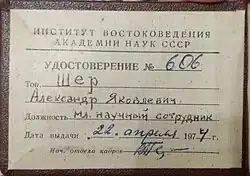 ИНСТИТУТ ВОСТОКОВЕДЕНИЯ
АКАДЕМИИ НАУК СССР
УДОСТОВЕРЕНИЕ № 606
Тов. Шер
Александр Яковлевич
Должность мл. научный сотрудник
Дата выдачи 22 апреля 1974 г.
Нач. отдела кадров